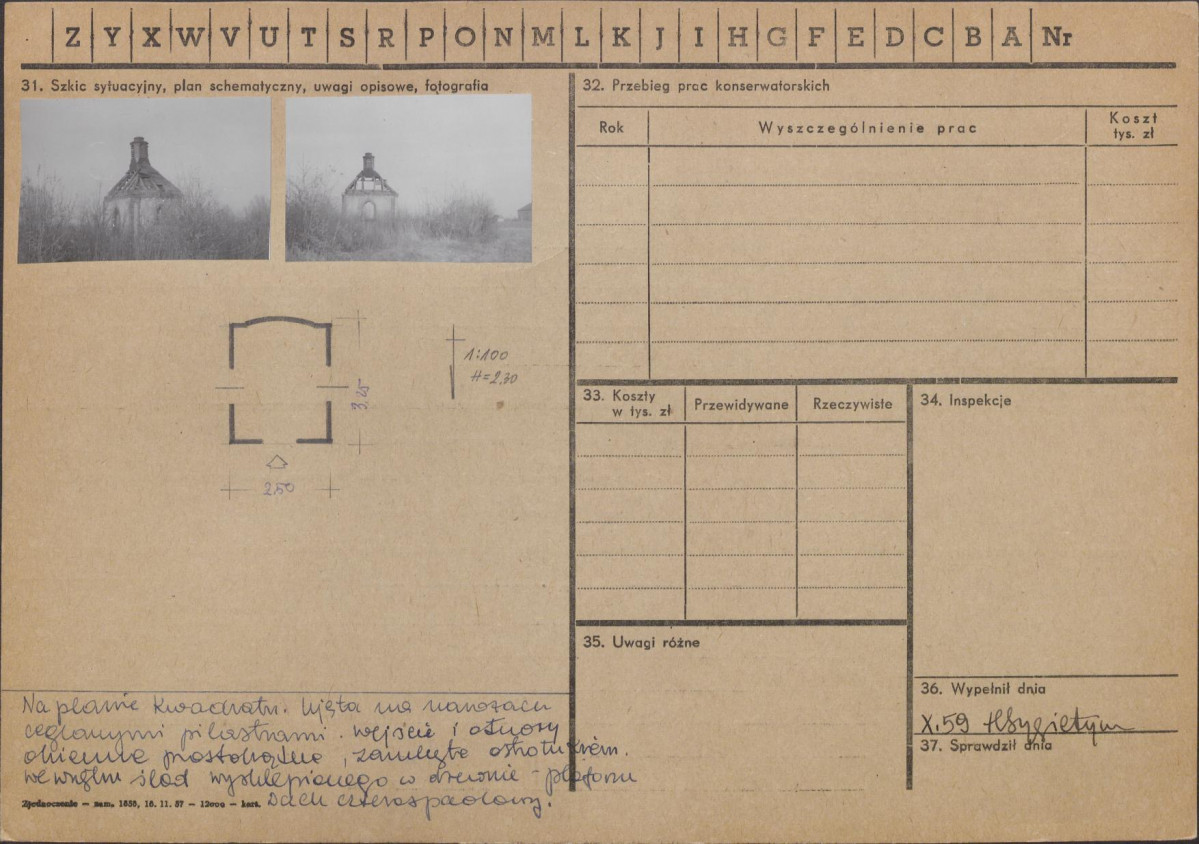 Z Y X W V U T S R P O N M L K J I H G F E D C B A Nr
31. Szkic sytuacyjny, plan schematyczny, uwagi opisowe, fotografia
1:100
H=2,30
3,25
2,50
Na planie kwadratu. Ujęta na narożach
ceglanymi pilastrami. wejście i otwory
okienne prostokątne, zamknięte ostrołukiem.
we wnętrzu ślad wysklepionego w drewnie - plafonu
Zjednoczenie — zam. 1855, 16. 11. 57 — 12000 — kart. Dach czterospadowy.
32. Przebieg prac konserwatorskich
Rok Wyszczególnienie prac Koszt tys. zł
33. Koszty w tys. zł Przewidywane Rzeczywiste
34. Inspekcje
35. Uwagi różne
36. Wypełnił dnia
X.59
37. Sprawdził dnia